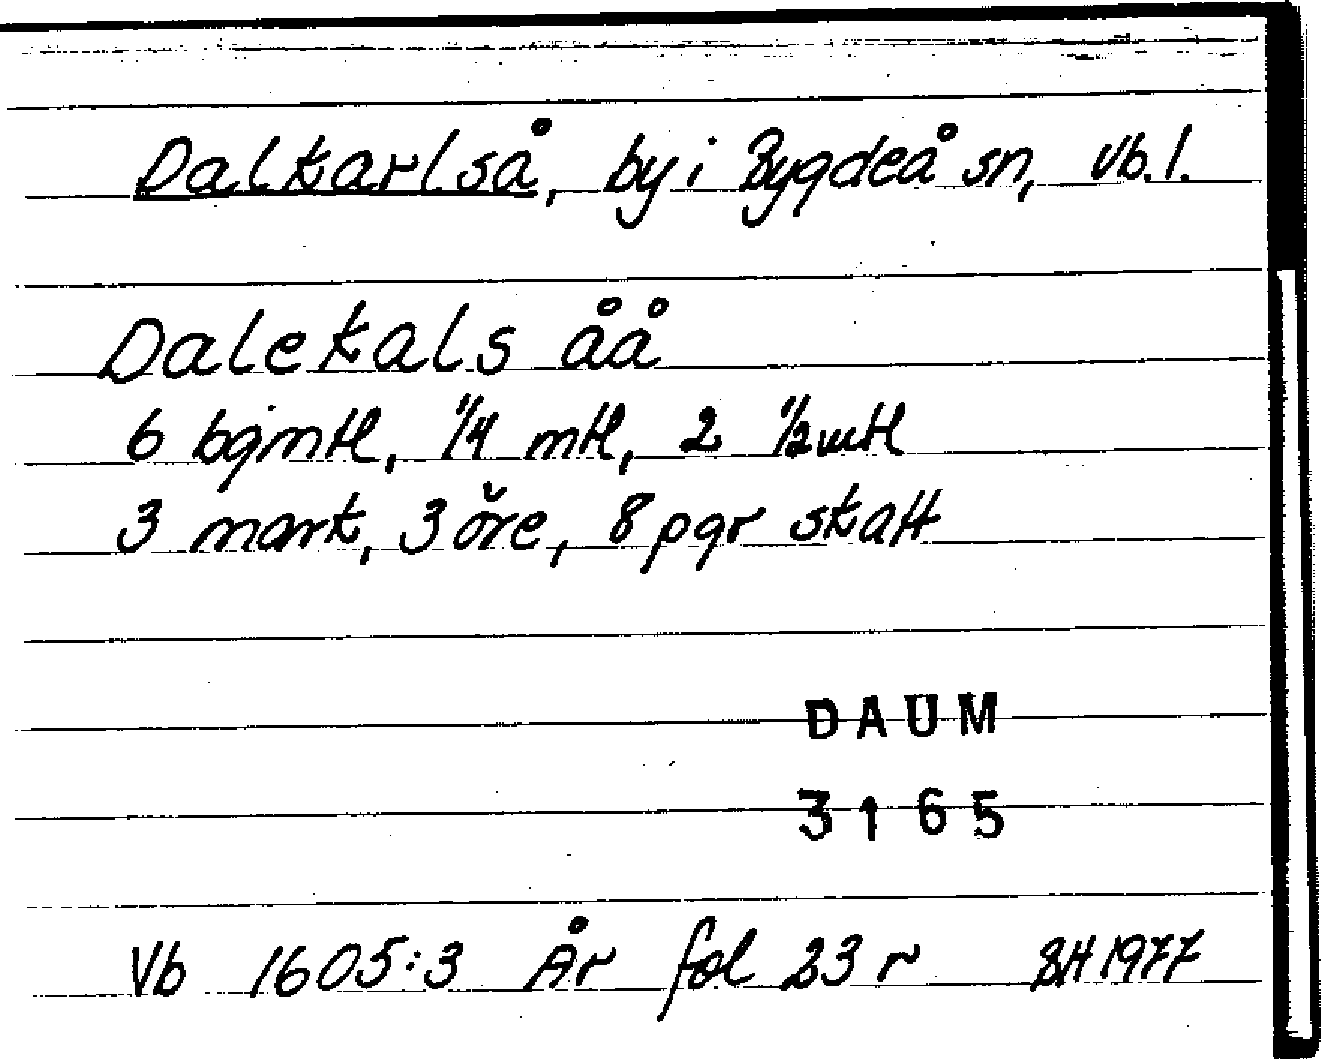 Dalkarlså, by i Bygdeå sn, Vb.l.
Dalekals åå
6 bgmtl, 1/4 mtl, 2 1/2 mtl
3 mark, 3 öre, 8 pgr skatt
DAUM
3165
Vb 1605:3 År fol 23 r BH 1977